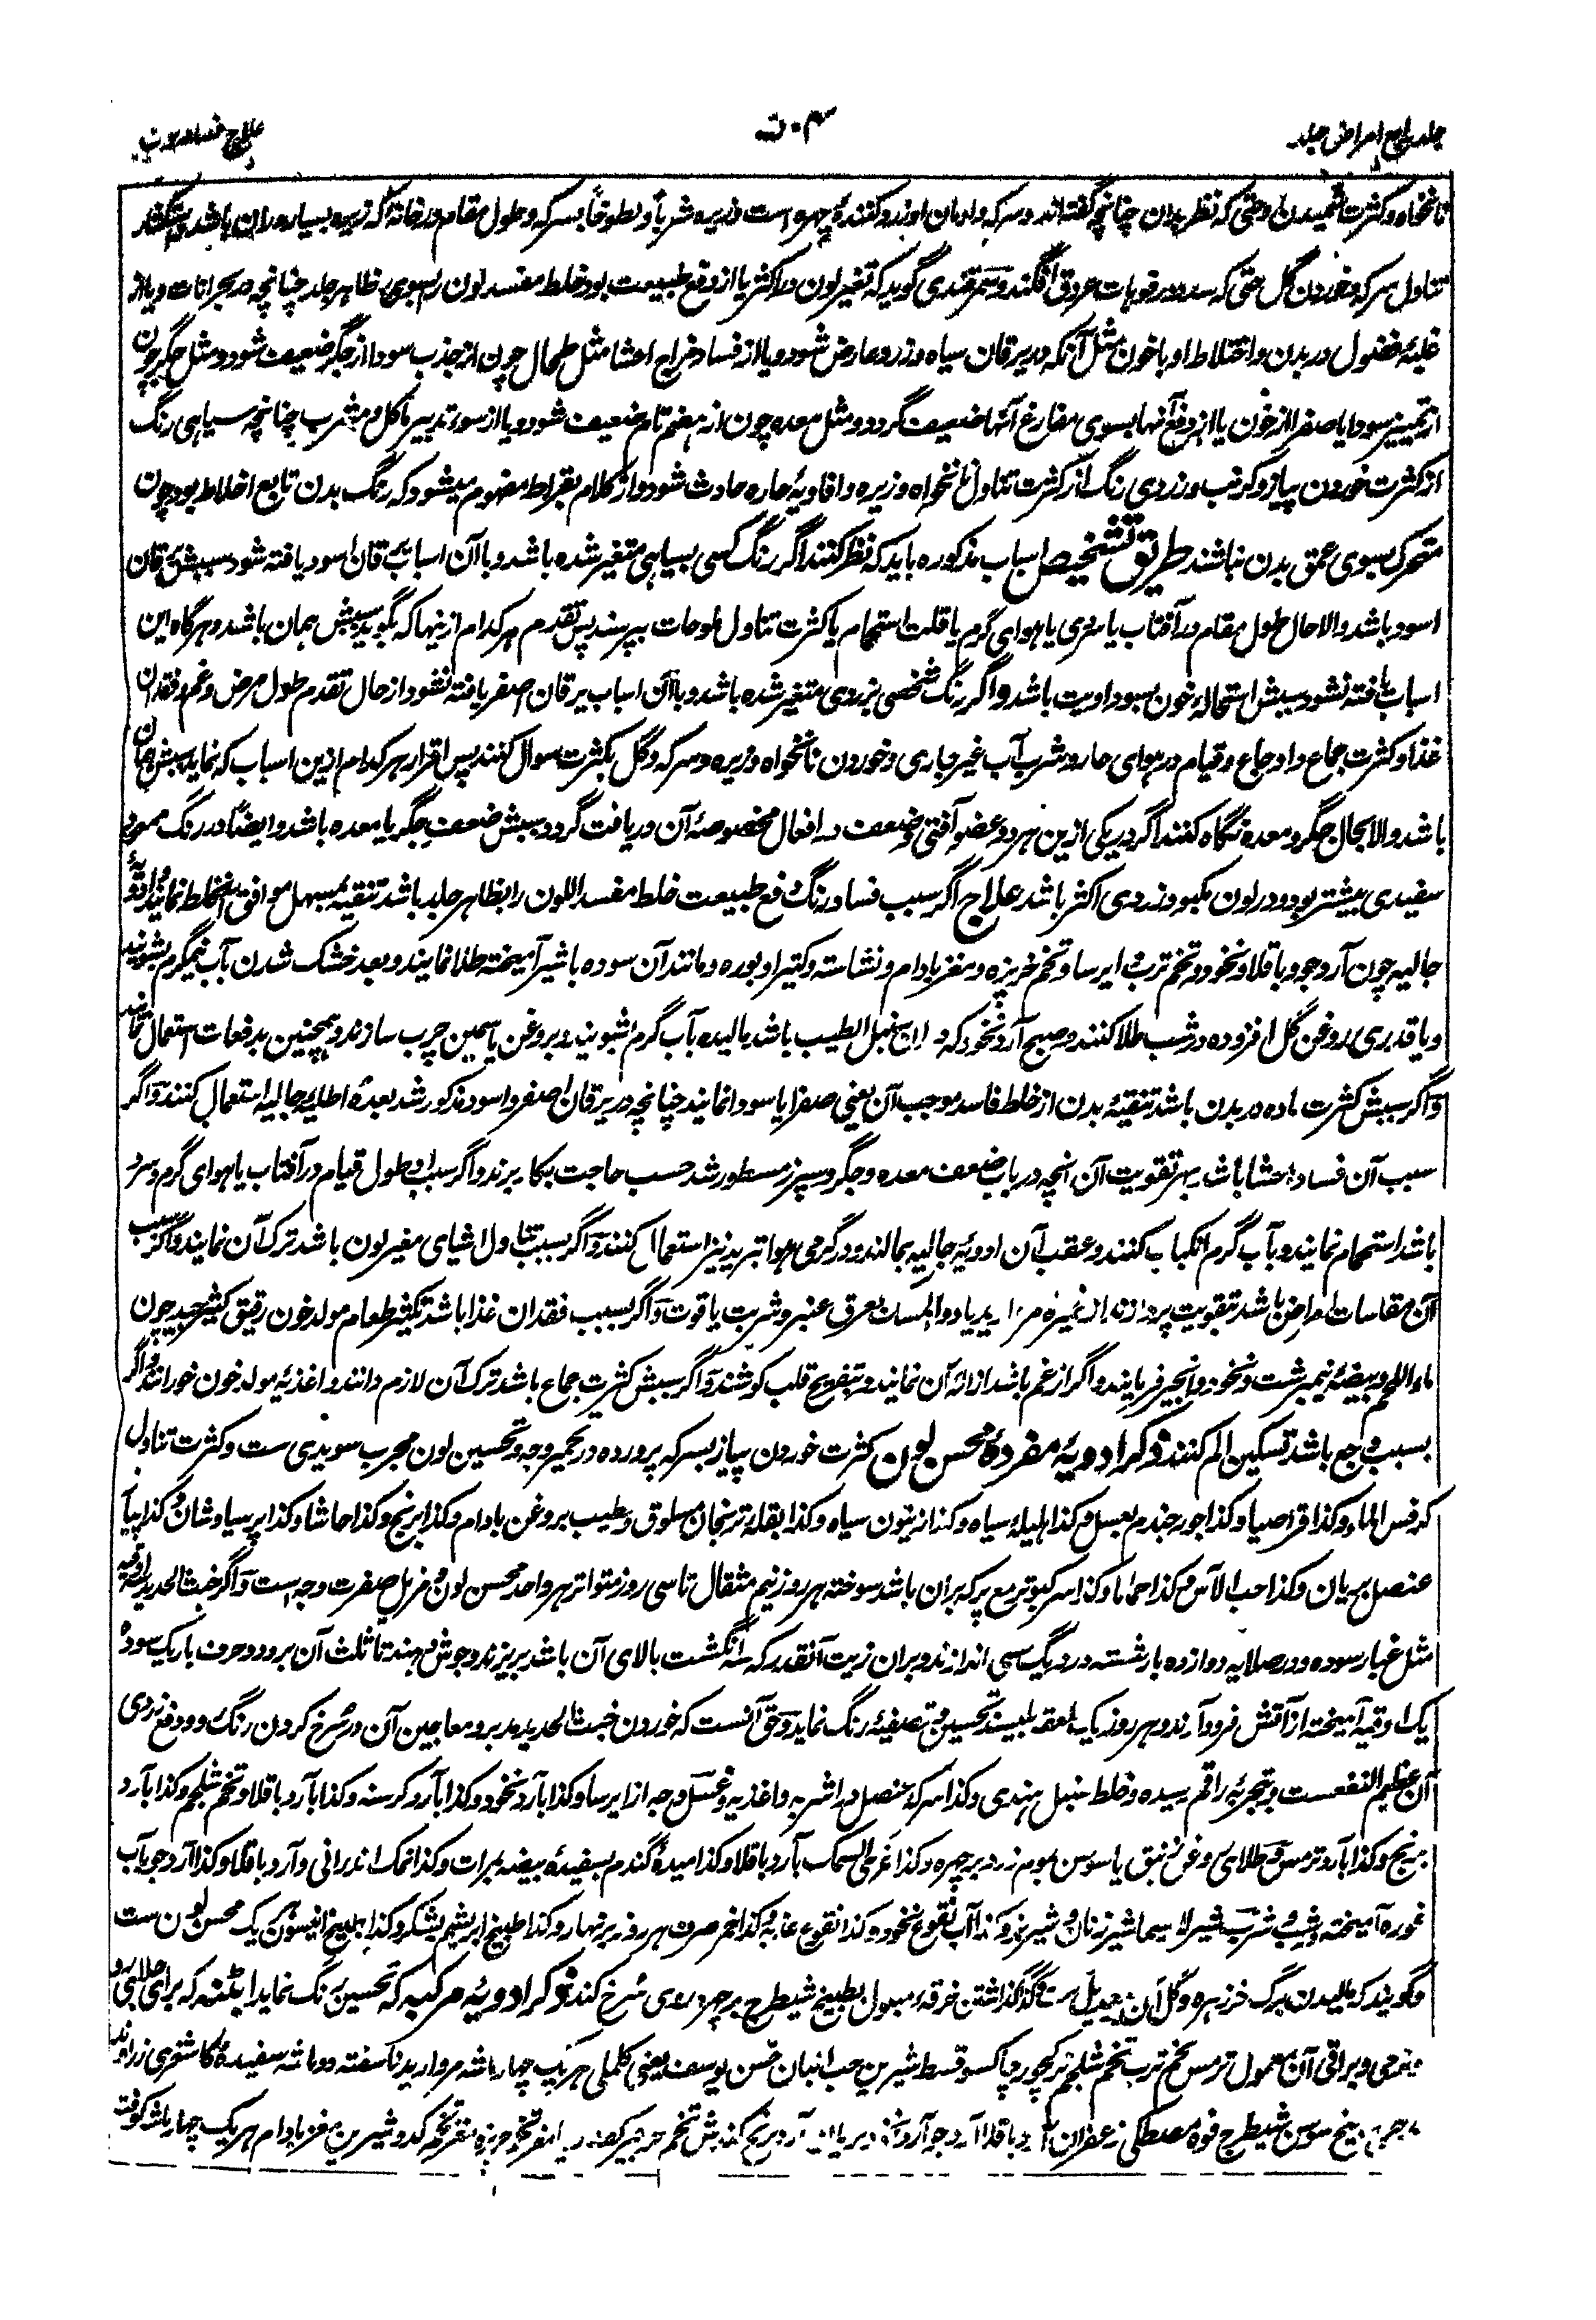 جلد رابع امراض جلد
علاج فساد لون
نانخواه و کثرت شمیدن او حتی که نظر بدان چنانچه گفته‌اند و سرکه و ادمان او زرد کنندهٔ چهره است و زیره شرباً و لطوخاً بسرکه و طول مقام در خانهٔ که زیره بسیار دران باشد
تناول سرکه و خوردن گل حتی که سدد در فوهات عروق افگند و سمرقندی گوید که تغیر لون در اکثر یا از دفع طبیعت بود خلط مفسد لون را بسوی ظاهر جلد چنانچه در بحرانات و یا از
غلبهٔ فضول در بدن و اختلاط او با خون مثل آنکه در یرقان سیاه و زرد عارض شود و یا از فساد مزاج احشا مثل طحال چون از جذب سودا از جگر ضعیف شود و مثل جگر چون
از تمییز سودا یا صفرا از خون یا از دفع آنها بسوی مفارغ آنها ضعیف گردد و مثل معده چون از هضم تام ضعیف شود و یا از سوء تدبیر ماکل و مشرب چنانچه سیاهی رنگ
از کثرت خوردن پیاز و کرنب و زردی رنگ از کثرت تناول نانخواه و زیره و افاویهٔ حاره حادث شود و از کلام بقراط مفهوم میشود که رنگ بدن تابع اخلاط بود چون
متحرک بسوی عمق بدن نباشند طریق تشخیص اسباب مذکوره باید که نظر کنند اگر رنگ کسی بسیاهی متغیر شده باشد و با آن اسباب یرقان اسود یافته شود سببش یرقان
اسود باشد والا حال طول مقام در آفتاب یا سردی یا هوای گرم یا قلت استحمام یا کثرت تناول ملوحات بپرسند پس تقدم هر کدام ازینها که بگوید سببش همان باشد و هرگاه این
اسباب یافته نشود سببش استحالهٔ خون بسوداویت باشد و اگر رنگ شخصی بزردی متغیر شده باشد و با آن اسباب یرقان اصفر یافته نشود از حال تقدم طول مرض و غم و فقدان
غذا و کثرت جماع و اوجاع و قیام در هوای حار و شرب آب غیر جاری و خوردن نانخواه و زیره و سرکه و گل بکثرت سوال کنند پس اقرار هر کدام ازین اسباب که نماید سببش همان
باشد والا بحال جگر و معده نگاه کنند اگر در یکی ازین هر دو عضو آفتی و ضعف در افعال مخصوصهٔ آن دریافت گردد سببش ضعف جگر یا معده باشد و ایضاً در رنگ معود
سفیدی بیشتر بود و در لون مکبود زردی اکثر باشد علاج اگر سبب فساد رنگ دفع طبیعت خلط مفسد اللون را بظاهر جلد باشد تنقیه بمسهل موافق آنخلط نمایند و ادویهٔ
جالیه چون آرد جو و باقلا و نخود و تخم ترب و ایرسا و تخم خربزه و مغز بادام و نشاسته و کتیرا و بوره و مانند آن سوده با شیر آمیخته طلا نمایند و بعد خشک شدن بآب نیمگرم بشویند
و یا قدری روغن گل افزوده در شب طلا کنند و صبح آرد نخود که در ان سنبل الطیب باشد بالیده بآب گرم بشویند و بروغن یاسمین چرب سازند و همچنین بدفعات استعمال نمایند
و اگر سببش کثرت ماده در بدن باشد تنقیهٔ بدن از خلط فاسد موجب آن یعنی صفرا یا سودا نمایند چنانچه در یرقان اصفر و اسود مذکور شد بعده اطلیه جالیه استعمال کنند و اگر
سبب آن فساد احشا باشد بهر تقویت آن انچه در باب ضعف معده و جگر و سپرز مسطور شد حسب حاجت بکار برند و اگر سبب طول قیام در آفتاب یا هوای گرم و سرد
باشد استحمام نمایند و بآب گرم انکباب کنند و عقب آن ادویهٔ جالیه بمالند و در گرمی هوا تبرید نیز استعمال کنند و اگر بسبب تناول اشیای مغیر لون باشد ترک آن نمایند و اگر سبب
آن مقاسات امراض باشد بتقویت پردازند از خمیره مروارید یا دواء المسک بعرق عنبر و شربت یاقوت و اگر بسبب فقدان غذا باشد تکثیر طعام مولد خون رقیق کثیر جید چون
ماء اللحم و بیضهٔ نیمبرشت و نخود و انجیر فرمایند و اگر از غم باشد ازالهٔ آن نمایند و بتفریح قلب کوشند و اگر سببش کثرت جماع باشد ترک آن لازم دانند و اغذیهٔ مولد خون خورانند و اگر
بسبب وجع باشد تسکین الم کنند ذکر ادویهٔ مفردهٔ محسن لون کثرت خوردن پیاز بسرکه پرورده در تحمیر وجه و تحسین لون مجرب سویدی ست و کثرت تناول
کرفس الماء و کذا قراصیا و کذا جوز جندم بعسل و کذا هلیلهٔ سیاه و کذا زیتون سیاه و کذا بقلهٔ ترنجان مسلوق و مطیب بروغن بادام و کذا برنج و کذا حاشا و کذا پرسیاوشان و کذا پیاز
عنصل بریان و کذا حب الآس و کذا حماما و کذا سر کبوتر مع پر که بران باشد سوخته هر روز نیم مثقال تا سی روز متواتر هر واحد محسن لون و مزیل صفرت وجه است و اگر خبث الحدید
مثل غبار سوده و در صلایه دوازده بار شسته در دیگ سی اندازند و بران زیت آنقدر که سه انگشت بالای آن باشد بریزند و جوش دهند تا ثلث آن برود و حرف باریک سوده
یک اوقیه آمیخته از آتش فرود آرند و هر روز یک ملعقه بلیسند تحسین و تصفیهٔ رنگ نماید و حق آنست که خوردن خبث الحدید مدبر و معاجین آن در سرخ کردن رنگ و دفع زردی
آن عظیم النفعست و بتجربهٔ راقم رسیده و خلط سنبل هندی و کذا سرکهٔ عنصل در اشربه و اغذیه و غسل وجه از ایرسا و کذا بآرد نخود و کذا بآرد کرسنه و کذا بآرد باقلا و تخم شلجم و کذا بآرد
برنج و کذا بآرد ترمس و طلای روغن زنبق یا سوسن بموم زرد بر چهره و کذا غری السمک بآرد باقلا و کذا میدهٔ گندم بسفیدهٔ بیضه بمرات و کذا نمک اندرانی و آرد باقلا و کذا آرد جو بآب
غوره آمیخته و شرب شیر لاسیما شیر زنان و شیر بز و کذا آب نقوع نخود و کذا نقوع عناب و کذا خمر صرف هر روز بر نهار و کذا طبیخ ابریشم بشکر و کذا طبیخ انیسون هر یک محسن لون ست
و گویند که مالیدن برگ خرزهره و گل آن و گذاشتن خرقهٔ مبلول بطبیخ شیطرج بر چهره روی سرخ کند ذکر ادویهٔ مرکبه که تحسین رنگ نماید ابٹنه که برای جلای رو
و نرمی و براقی آن معمول ترمس تخم ترب تخم شلجم نرکچور چاکسو قسط شیرین حب البان حسن یوسف یعنی کلملی هر یک چهار ماشه مروارید ناسفته دو ماشه سفیدهٔ کاشغری زراوند
بیخ سوسن شیطرج فوه مصطکی زعفران آرد باقلا آرد جو آرد نخود بریان آرد برنج کندش تخم جرجیر مغز تخم خربزه مغز تخم کدو شیرین مغز بادام هر یک چهار ماشه کوفته